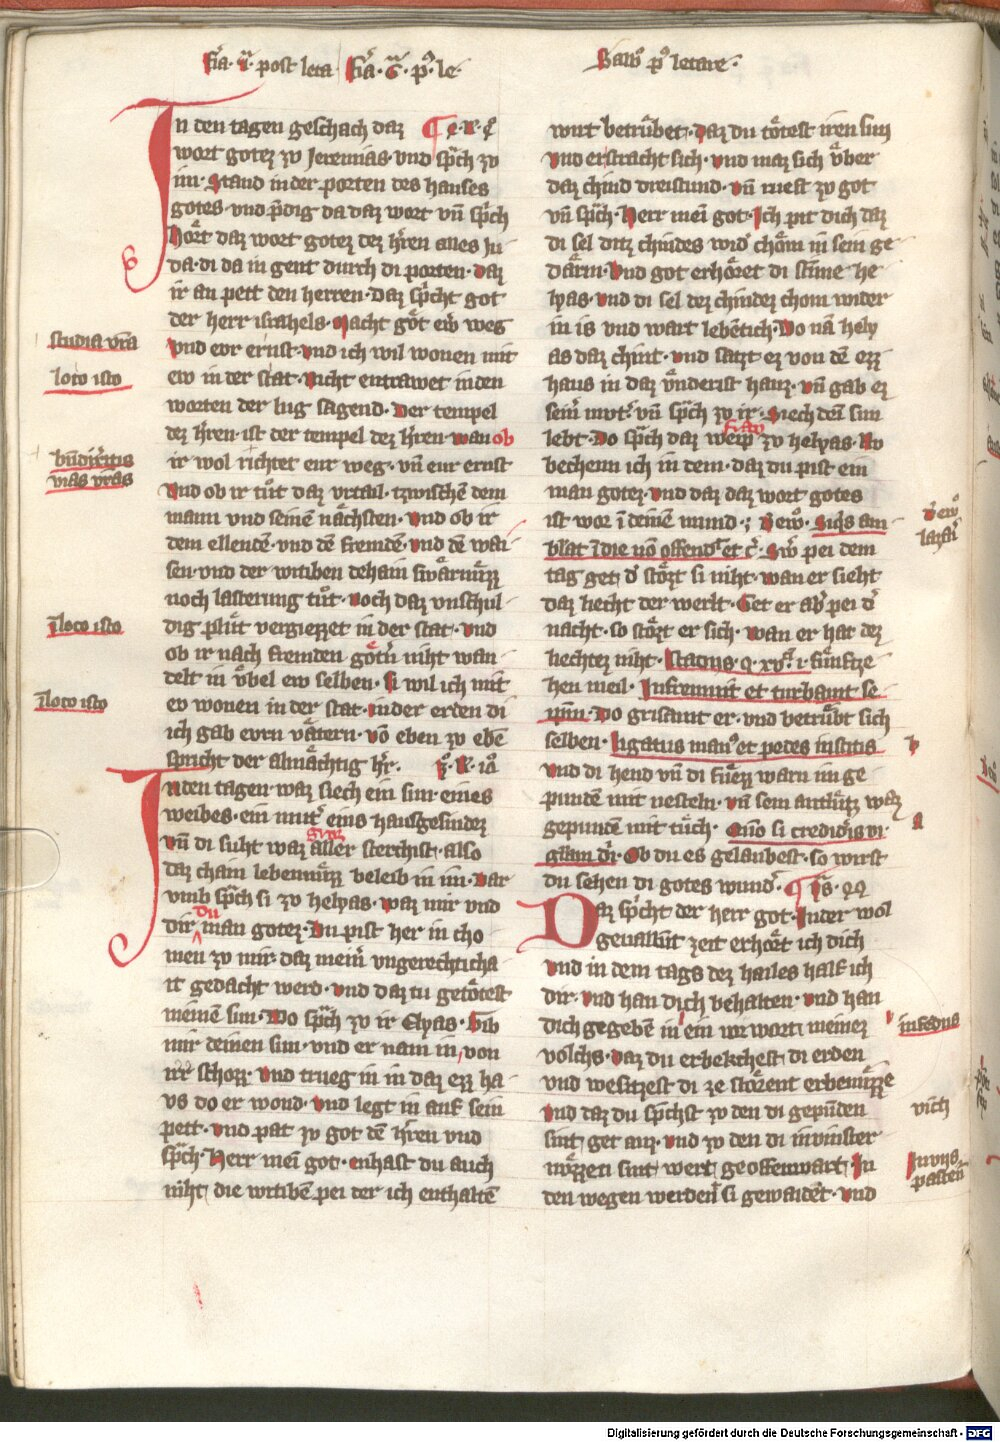 fr̄ia · ii · post leta fr̄ia · vi · p⁹ · le ·
Sabbō p⁹ letare ·
In den tagen geschach daz
wort gotez zv Jeremias · vnd sp̄ch zv
im · Stand in der porten des hauses
gotes · vnd p̄dig da daz wort vn̄ sp̄ch
Hoͤrt daz wort gotez dez h̄ren alles Ju
da · di da in gent durch di porten · Daz
ir an pett den herren · Daz sp̄cht got
der herr israhels · Macht guͦt ewͥ weg
vnd evr ernst · vnd ich wil wonen mit
ew in der stat · Nicht entrawet in den
worten der lug sagend · Der tempel
dez h̄ren · ist der tempel dez h̄ren · wan ob
ir wol richtet eur weg · vn̄ eur ernst
Vnd ob ir tuͦt daz vrtail · tzwischē dem
mann vnd seinē naͤchsten · Vnd ob ir
dem ellendē · vnd dē fremdē · vnd dē wai
sen · vnd der witiben dehain swaͤrnuͤzz
noch lasterung tuͦt · Noch daz vnschul
dig pluͤt vergiezzet in der stat · vnd
ob ir nach fremden goͤtn̄ niht wan
delt in vͤbel ew selben · Si wil ich mit
ev wonen in der stat · in der erden di
ich gab evrn vaͤtern · vō eben zv ebē
spricht der almaͤchtig h̄r ·
In den tagen waz siech ein sun · eines
weibes · ein mut̄ eins hausgesindez
vn̄ di suht waz aller sterchist · also
daz chain lebennuͤzz beleib in im · Dar
vmb sp̄ch si zv helyas · waz mir vnd
dir du man gotez · Du pist her in cho
men zv mir · daz mein̄ vngerechticha
it gedacht werd · vnd daz tu getoͤtest
meinen sun · Do sp̄ch zv ir Elyas · Gib
mir deinen sun · vnd er nam in, von
irr schozz · Vnd trueg in in daz ezz ha
vs do er wond · vnd legt in auf sein
pett · vnd pat zv got dē h̄ren vnd
sp̄ch · Herr mei got · enhast du auch
niht die witibē pei der ich enthaltē
studia vr̄a
loco isto
bn̄ dirx̄itis
vias vr̄as
ī loco isto
ī loco isto
wirt betruͤbet · Daz du toͤtest iren sun
vnd erstracht sich · vnd maz sich vͤber
daz chind dreistund · vn̄ ruest zv got
vn̄ sp̄ch · Herr mei got · Ich pit dich daz
di sel ditz chindes wid̄ choͤm in sein ge
daͤrm · Vnd got erhoͤret di stime he
lyas · vnd di sel dez chindez chom wider
in is vnd wart lebētich · Do nā hely
as daz chint · vnd satzt ez von dē ezz
haus in daz vͤnderist hauz · vn̄ gab ez
sein̄ mut̄ · vn̄ sp̄ch zv ir · Siech dei sun
lebt · Do sp̄ch daz weip zv helyas · Nv
bechenn ich in dem · daz du pist ein
man gotez · vnd daz daz wort gotes
ist wor ī deinē mund · Siq̄s am
blat ī die nō offendit et c̄ · Swͥ pei dem
tag get d̄ stoͤzt si niht · wan er sieht
daz liecht der werlt · Get er ab̄ pei d̄
nacht · so stoͤzt er sich · wan er hat dez
liechtez niht · Stadiis q̄ xvᵃ · i · fuͤnftze
hen meil · Infremuit et turbauit se
ipm̄ · Do grisamt er · vnd betruͤbt sich
selben · Ligatus man⁹ et pedes institis
vnd di hend vn̄ di fuͤzz warn im ge
pundē mit nesteln · vn̄ sein antluͤtz waz
gepundē mit tuͤch · Qm̄ si credid̄is vi
gl̄iam dī · Ob du es gelaubest · so wirst
du sehen di gotes wund̄ ·
Daz sp̄cht der herr got · In der wol
geuallent zeit erhoͤrt ich dich
vnd in dem tags dez hailes half ich
dir · vnd han dich behalten · vnd han
dich gegebē in ein wi wortu meinez
volchs · daz du erbekchest di erden
vnd wesitzest di ze stoͤrent erbenuͤzze
vnd daz du sp̄chst zv den di gepūden
sint · get auz · vnd zv den di in vinster
nuͤzzen sint · wert geoffenwart · In
den wegen werden̄ si gewaidēt · vnd
lazar̄
b
a
in fedus
vinctis
In vijs
pascen̄
Digitalisierung gefördert durch die Deutsche Forschungsgemeinschaft - DFG